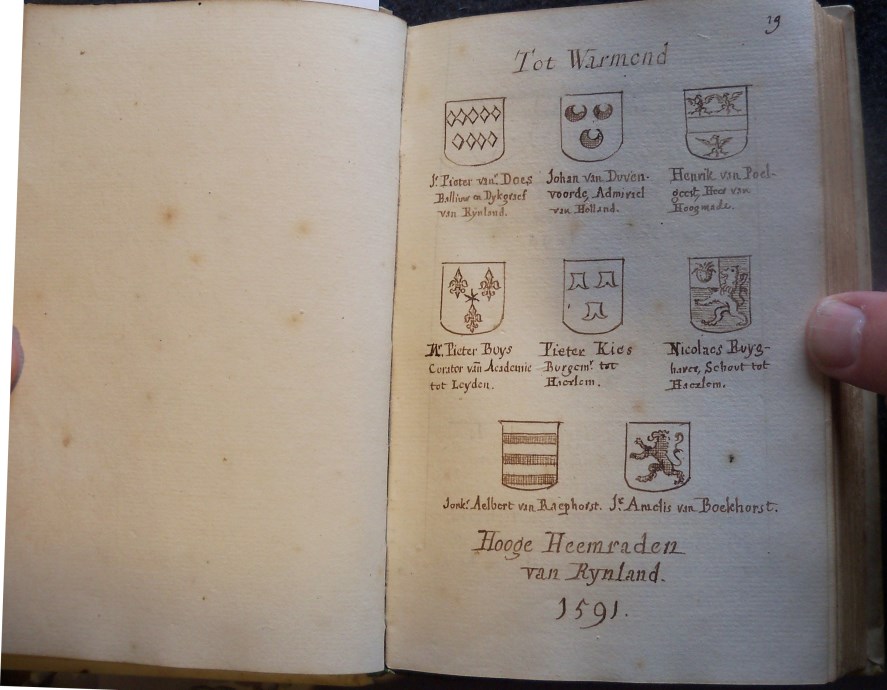 19
Tot Warmond
Jr. Pieter van der Does
Balliuw en Dykgraef
van Rynland.
Johan van Duven-
voorde, Admirael
van Holland.
Henrik van Poel-
geest, Heer van
Hoogmade.
Mr. Pieter Buys
Curator van Academie
tot Leyden.
Pieter Kies
Burgemr. tot
Haerlem.
Nicolaes Ruyg-
haver, Schout tot
Haerlem.
Jonkr. Aelbert van Raephorst.
Jr. Amelis van Boekhorst.
Hooge Heemraden
van Rynland.
1591.